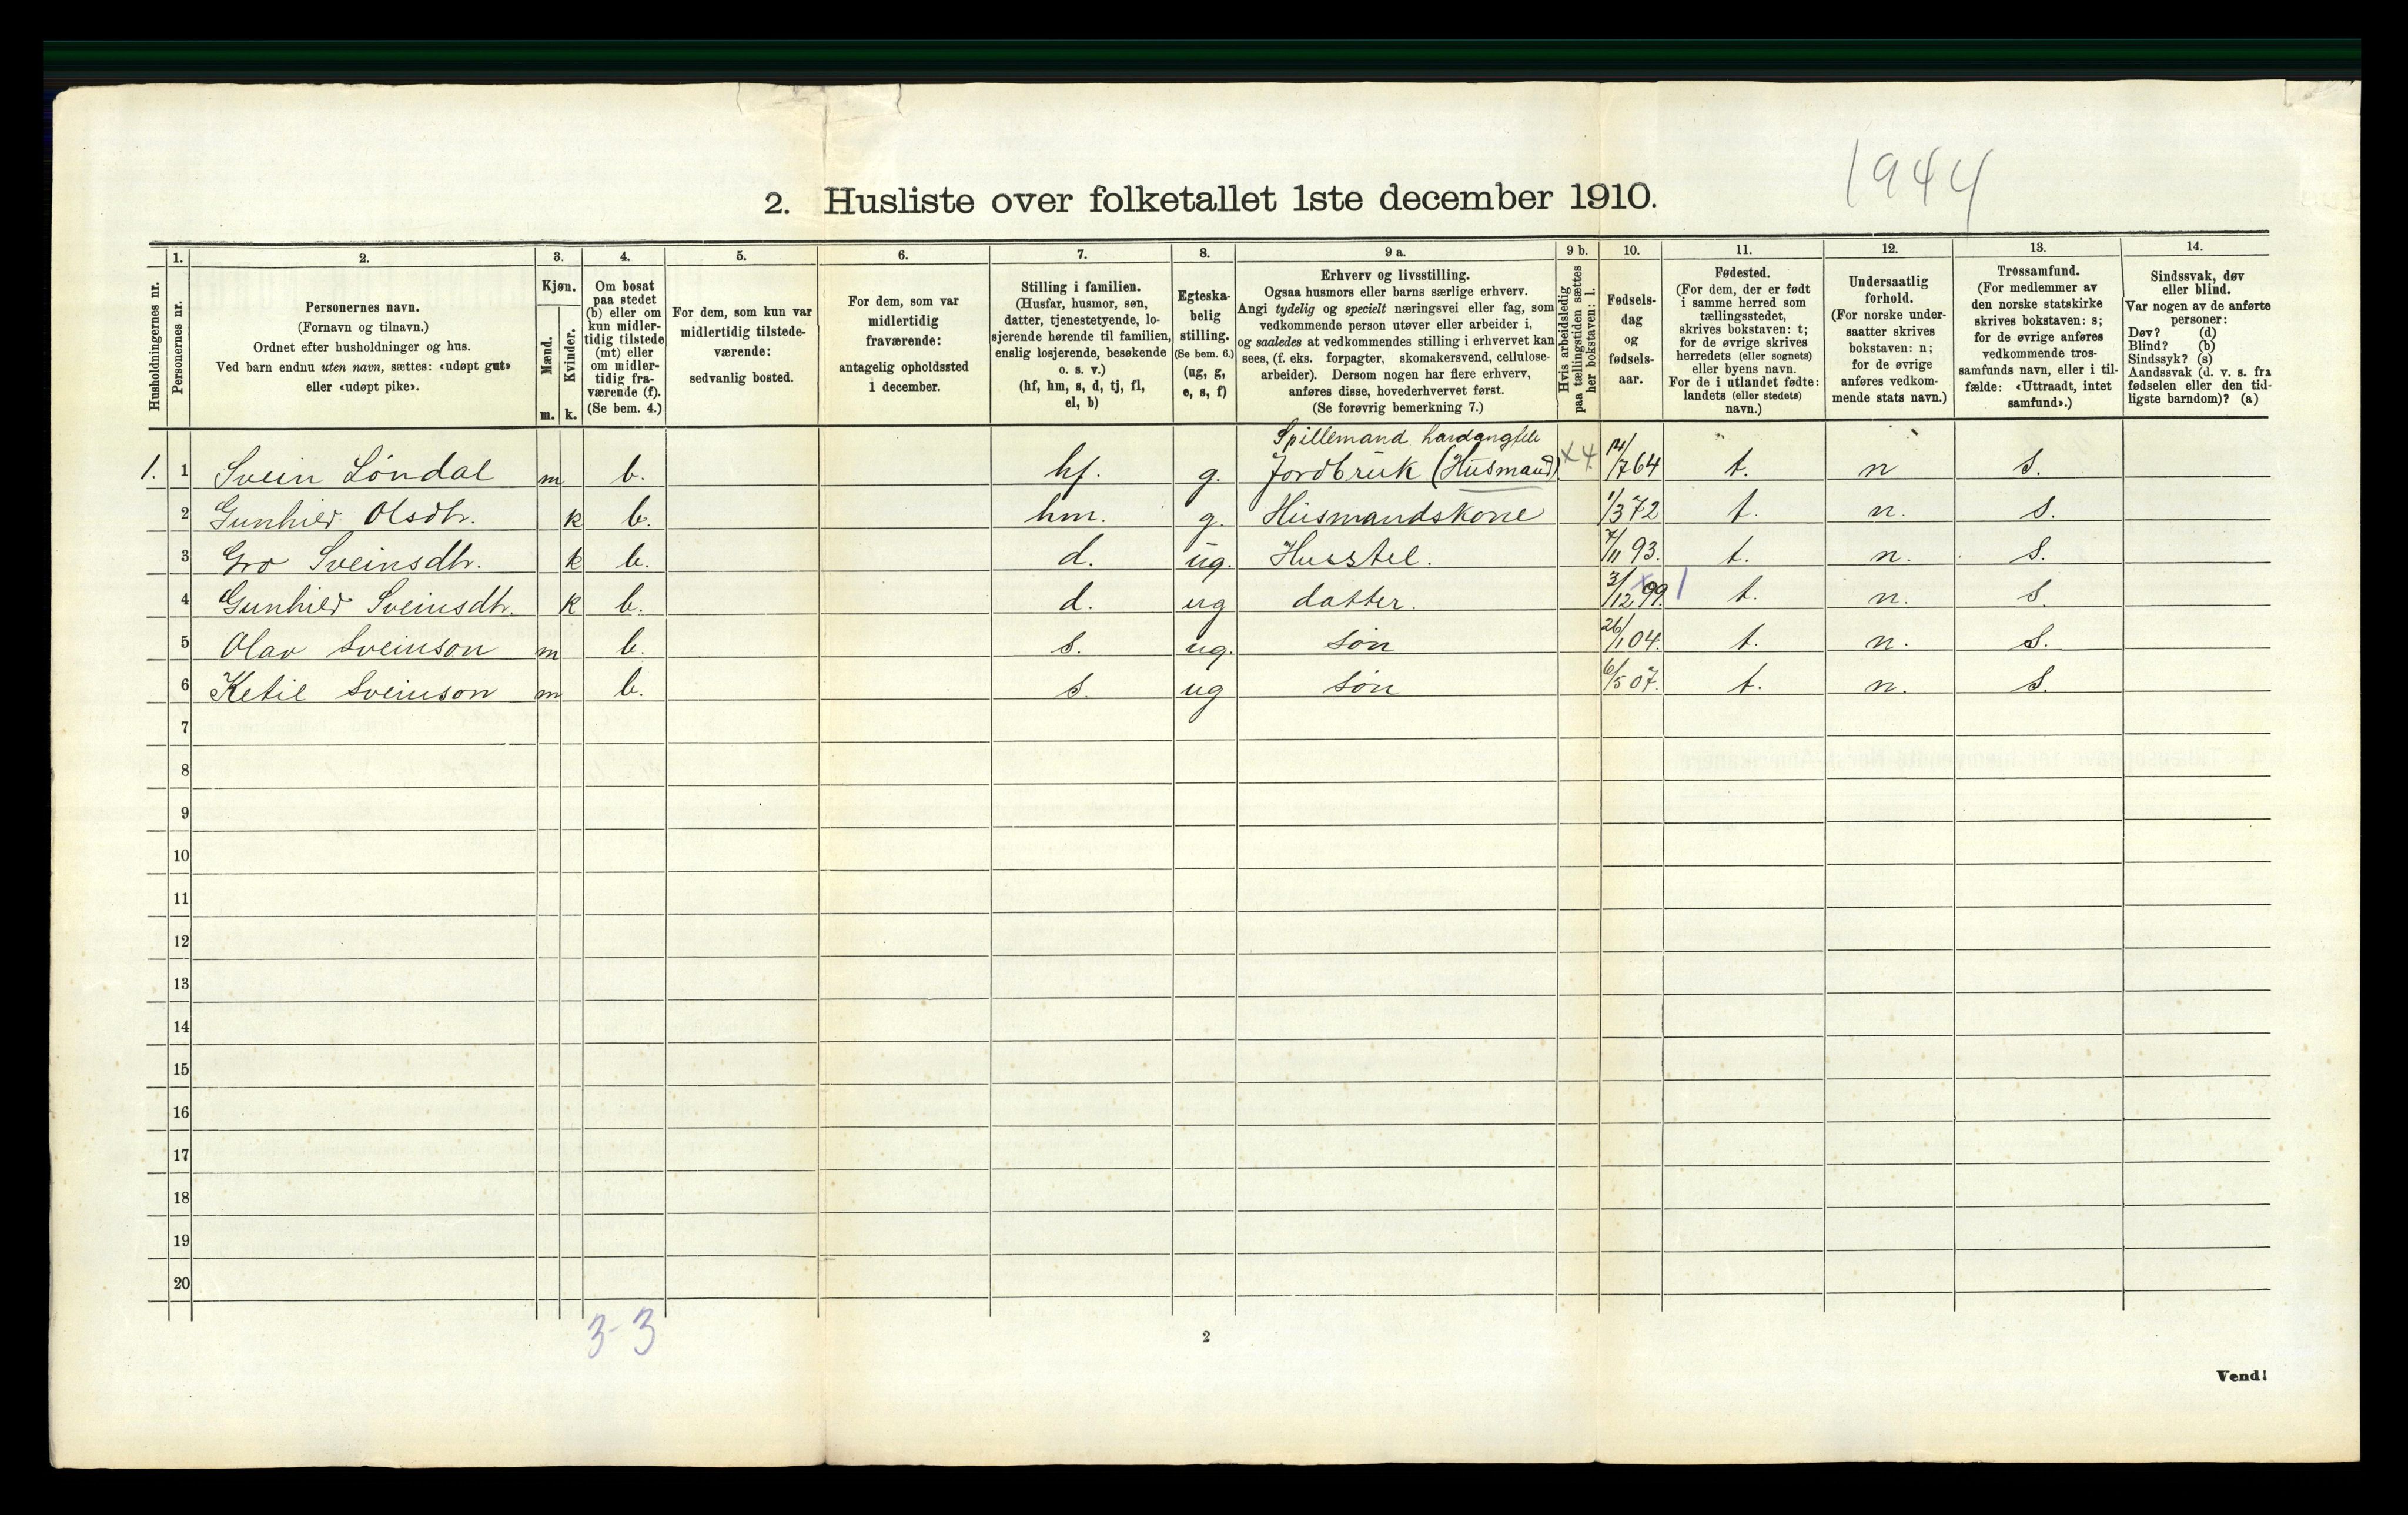 1944
2. Husliste over folketallet 1ste december 1910.
Husholdningernes nr.
1.
Personernes nr.
2.
Personernes navn.
(Fornavn og tilnavn.)
Ordnet efter husholdninger og hus.
Ved barn endnu uten navn, sættes: «udøpt gut»
eller «udøpt pike».
3.
Kjøn.
Mænd.
Kvinder.
m. k.
4.
Om bosat
paa stedet
(b) eller om
kun midler-
tidig tilstede
(mt) eller
om midler-
tidig fra-
værende (f).
(Se bem. 4.)
5.
For dem, som kun var
midlertidig tilstede-
værende:
sedvanlig bosted.
6.
For dem, som var
midlertidig
fraværende:
antagelig opholdssted
1 december.
7.
Stilling i familien.
(Husfar, husmor, søn,
datter, tjenestetyende, lo-
sjerende hørende til familien,
enslig losjerende, besøkende
o. s. v.)
(hf, hm, s, d, tj, fl,
el, b)
8.
Egteska-
belig
stilling.
(Se bem. 6.)
(ug, g,
e, s, f)
9 a.
Erhverv og livsstilling.
Ogsaa husmors eller barns særlige erhverv.
Angi tydelig og specielt næringsvei eller fag, som
vedkommende person utøver eller arbeider i,
og saaledes at vedkommendes stilling i erhvervet kan
sees, (f. eks. forpagter, skomakersvend, cellulose-
arbeider). Dersom nogen har flere erhverv,
anføres disse, hovederhvervet først.
(Se forøvrig bemerkning 7.)
9 b.
Hvis arbeidsledig
paa tællingstiden sættes
her bokstaven: l.
10.
Fødsels-
dag
og
fødsels-
aar.
11.
Fødested.
(For dem, der er født
i samme herred som
tællingsstedet,
skrives bokstaven: t;
for de øvrige skrives
herredets (eller sognets)
eller byens navn.
For de i utlandet fødte:
landets (eller stedets)
navn.)
12.
Undersaatlig
forhold.
(For norske under-
saatter skrives
bokstaven: n;
for de øvrige
anføres vedkom-
mende stats navn.)
13.
Trossamfund.
(For medlemmer av
den norske statskirke
skrives bokstaven: s;
for de øvrige anføres
vedkommende tros-
samfunds navn, eller i til-
fælde: «Uttraadt, intet
samfund».)
14.
Sindssvak, døv
eller blind.
Var nogen av de anførte
personer:
Døv? (d)
Blind? (b)
Sindssyk? (s)
Aandssvak (d. v. s. fra
fødselen eller den tid-
ligste barndom)? (a)
Spillemand hardangfele
1. 1 Svein Løndal m b. hf. g. Jordbruk (Husmand) x4 14/7 64 t. n s.
2 Gunhild Olsdtr. k b. hm. g. Husmandskone 1/3 72 t. n. s.
3 Gro Sveinsdtr. k b. d. ug. Husstel. 7/11 93. t. n. s.
4 Gunhild Sveinsdtr. k b. d. ug datter. 3/12 x99. 1 t. n. s.
5 Olav Sveinson m b. s. ug. søn 26/1 04. t. n. s.
6 Ketil Sveinson m b. s. ug søn 6/5 07. t. n. s.
7
8
9
10
11
12
13
14
15
16
17
18
19
20
3-3
2
Vend!